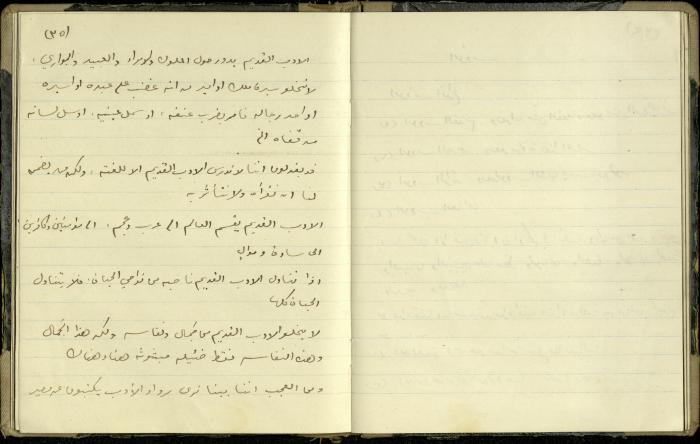 (٣٥)
الادب القديم يدور حول الملوك والامراء والعبيد والجواري.
لا تخلو سيرة ملك او امير من انه غضب على عبده او اسيره
او احد رجاله فامر بضرب عنقه، او سمل عينيه، او سل لسانه
من قفاه الخ
قد يقولون اننا لا ندرس الادب القديم الا للغته، ولكن من يضمن
لنا ان نقرأه ولا نتأثر به
الادب القديم يقسم العالم الى عرب وعجم، الى مؤمنين وكافرين
الى سادة وموالي
اذا تناول الادب القديم ناحية من نواحي الحياة، فلا يتناول
الحياة كلها
لا يخلو الادب القديم من جمال ونفاسة ولكن هذا الجمال
وهذه النفاسة فقط ضئيلة مبثوثة هنا وهناك
ومن العجب اننا بينا نرى رواد الأدب يكتبون عن